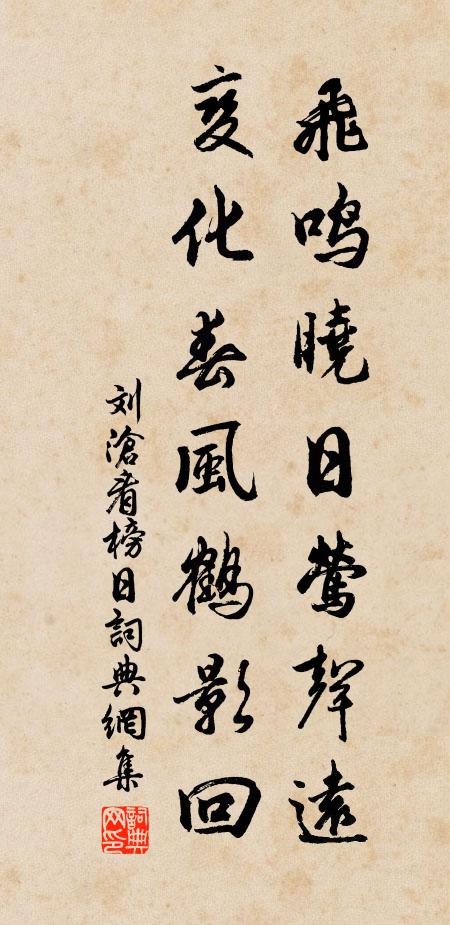 飛鳴曉日鶯聲遠
变化春風鶴影回
刘滄看榜日詞典網集
詞典网印